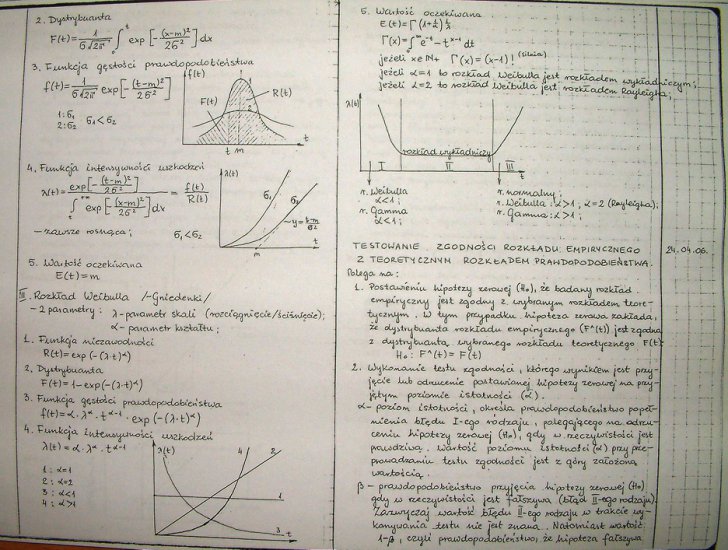 2. Dystrybuanta
F(t) = 1/(б√2π) ∫₀ᵗ exp[-(x-m)²/2б²] dx
3. Funkcja gęstości prawdopodobieństwa
f(t) = 1/(б√2π) exp[-(t-m)²/2б²]
1: б₁
2: б₂
б₁ < б₂
f(t)
F(t)
R(t)
1
2
t m
t
4. Funkcja intensywności uszkodzeń
λ(t) = exp[-(t-m)²/2б²] / ∫ₜ^∞ exp[-(x-m)²/2б²] dx = f(t)/R(t)
– zawsze rosnąca;
б₁ < б₂
λ(t)
б₁
б₂
y = (t-m)/б²
m
t
5. Wartość oczekiwana
E(t) = m
III. Rozkład Weibulla /-Gniedenki/
– 2 parametry: λ-parametr skali (rozciągnięcie/ściśnięcie);
α- parametr kształtu;
1. Funkcja niezawodności
R(t) = exp(-(λ·t)^α)
2. Dystrybuanta
F(t) = 1-exp(-(λ·t)^α)
3. Funkcja gęstości prawdopodobieństwa
f(t) = α·λ^α·t^(α-1)·exp(-(λ·t)^α)
4. Funkcja intensywności uszkodzeń
λ(t) = α·λ^α·t^(α-1)
1: α=1
2: α=2
3: α<1
4: α>1
λ(t)
4
2
1
3
t
5. Wartość oczekiwana
E(t) = Γ(1+1/α)1/λ
Γ(x) = ∫₀^∞ e⁻ᵗ - tˣ⁻¹ dt
jeżeli x∈N+ Γ(x) = (x-1)! (silnia)
jeżeli α=1 to rozkład Weibulla jest rozkładem wykładniczym;
jeżeli α=2 to rozkład Weibulla jest rozkładem Rayleigha;
λ(t)
rozkład wykładniczy
I
II
III
t
r. Weibulla
α<1;
r. Gamma
α<1;
r. normalny;
r. Weibulla: α>1, α=2 (Rayleigha);
r. Gamma: α>1;
TESTOWANIE ZGODNOŚCI ROZKŁADU EMPIRYCZNEGO
24.04.06.
Z TEORETYCZNYM ROZKŁADEM PRAWDOPODOBIEŃSTWA.
Polega na:
1. Postawieniu hipotezy zerowej (H₀), że badany rozkład
empiryczny jest zgodny z wybranym rozkładem teore-
tycznym. W tym przypadku hipoteza zerowa zakłada,
że dystrybuanta rozkładu empirycznego (F^(t)) jest zgodna
z dystrybuantą wybranego rozkładu teoretycznego F(t)
H₀: F^(t) = F(t)
2. Wykonanie testu zgodności, którego wynikiem jest przy-
jęcie lub odrzucenie postawionej hipotezy zerowej na przy-
jętym poziomie istotności (α).
α- poziom istotności, określa prawdopodobieństwo popeł-
nienia błędu I-ego rodzaju, polegającego na odrzu-
ceniu hipotezy zerowej (H₀), gdy w rzeczywistości jest
prawdziwa. Wartość poziomu istotności (α) przy prze-
prowadzaniu testu zgodności jest z góry założoną
wartością.
β – prawdopodobieństwo przyjęcia hipotezy zerowej (H₀)
gdy w rzeczywistości jest fałszywa (błąd II-ego rodzaju).
Zazwyczaj wartość błędu II-ego rodzaju w trakcie wy-
konywania testu nie jest znana. Natomiast wartość
1-β, czyli prawdopodobieństwo, że hipoteza fałszywa